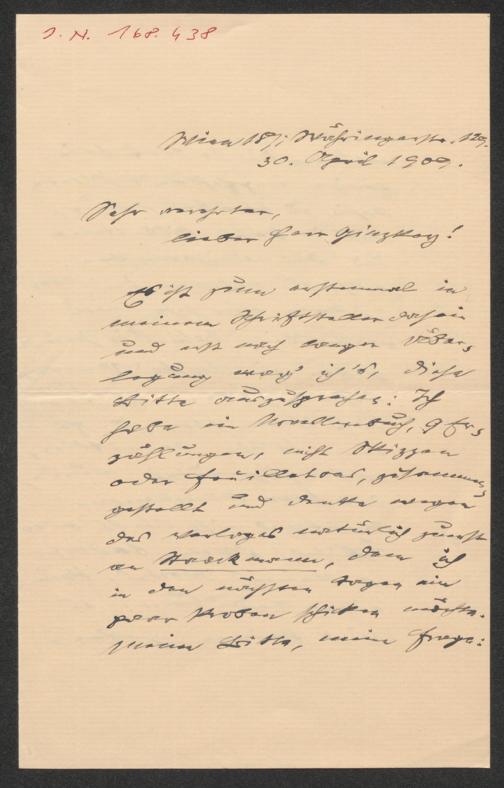 I. N. 168.438
Wien 18/1 Währingerstr. 129.
30. April 1909.
Sehr verehrter,
lieber Herr Ginzkey!
Es ist zum erstenmal in
meinem Schriftstellerdasein
und erst nach langer Über-
legung wag' ich's, diese
Bitte auszusprechen: Ich
habe ein Novellenbuch, 9 Er-
zählungen, nicht Skizzen
oder Feuilletons, zusammen-
gestellt und denke wegen
des Verlages natürlich zuerst
an Staackmann, dem ich
in den nächsten Tagen ein
paar Proben schicken möchte.
Meine Bitte, meine Frage: